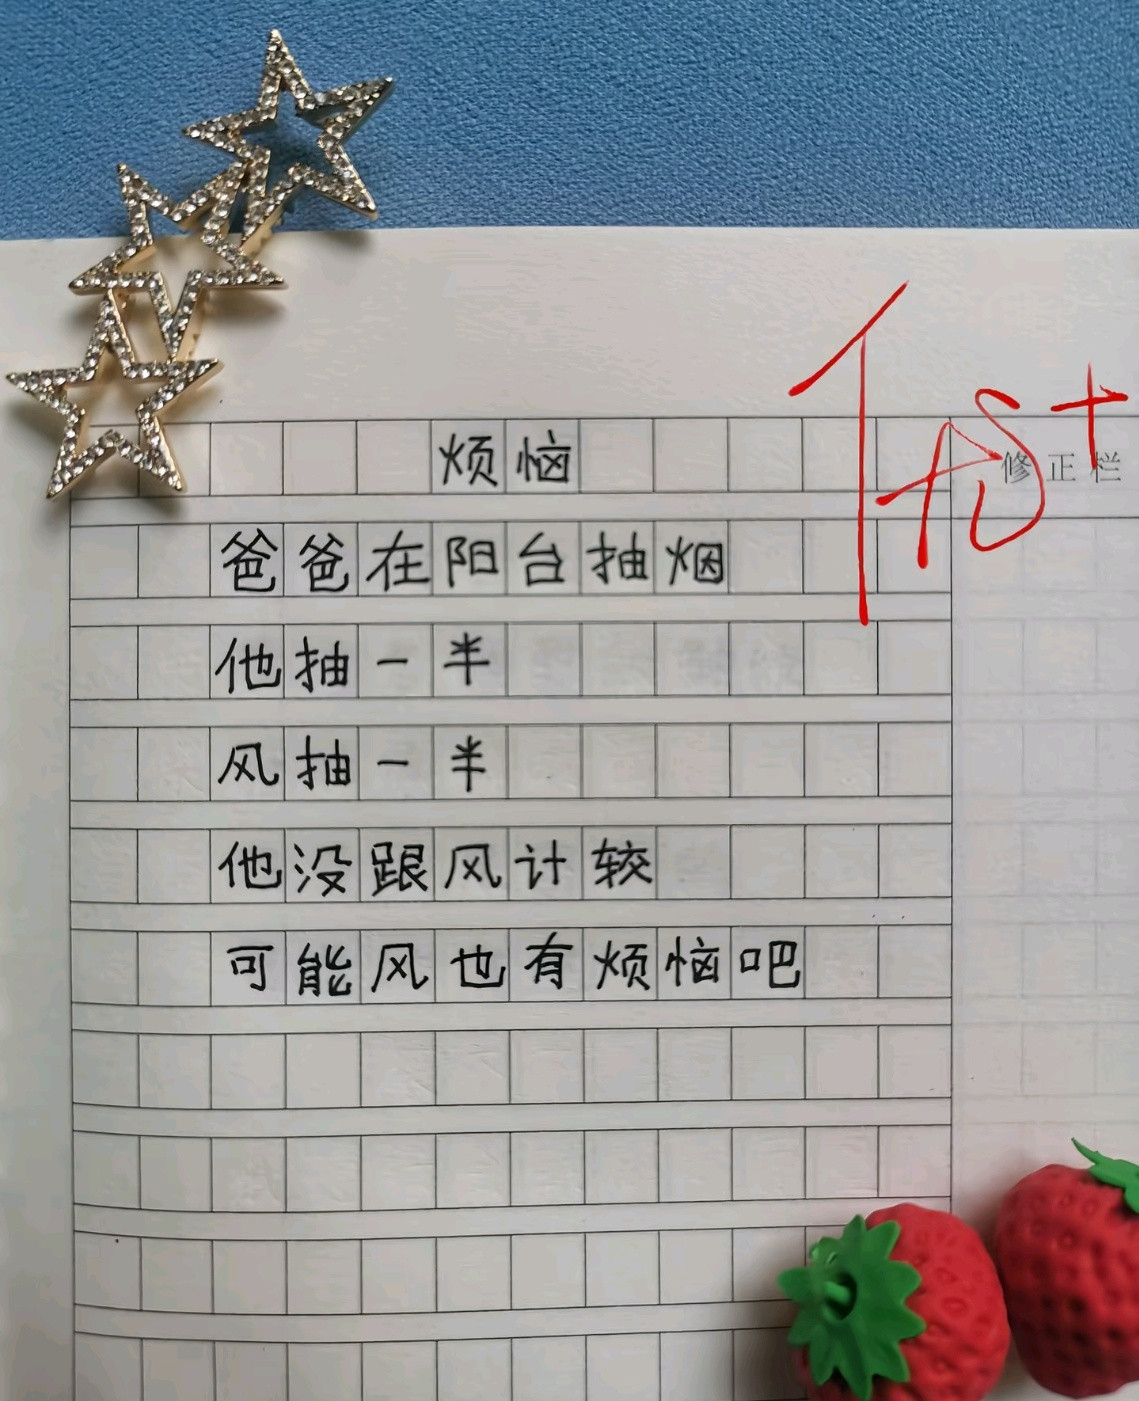 烦恼
Test
修正栏
爸爸在阳台抽烟
他抽一半
风抽一半
他没跟风计较
可能风也有烦恼吧